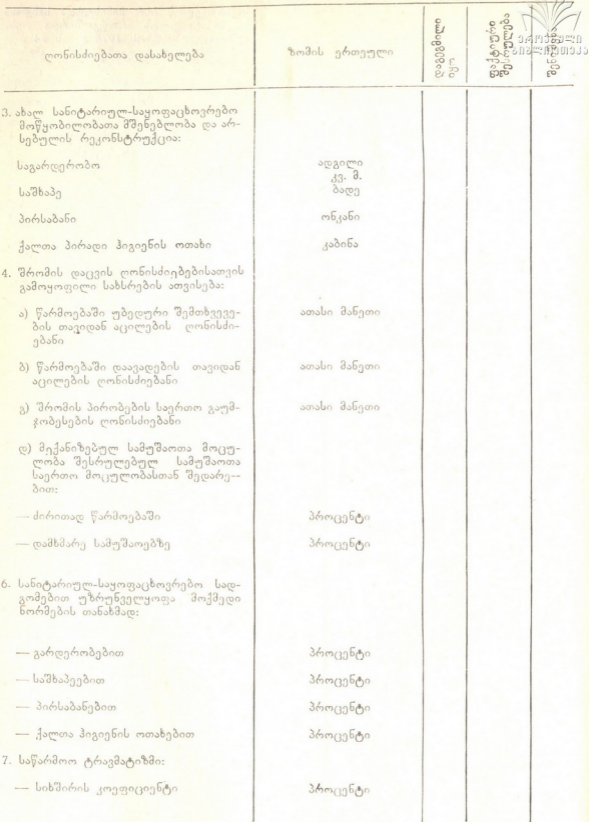 ღონისძიებათა დასახელება
ზომის ერთეული
დაგეგმილი იყო
ფაქტიური შესრულება
შენიშვნა
ეროვნული
ბიბლიოთეკა
3. ახალ სანიტარიულ-საყოფაცხოვრებო
მოწყობილობათა მშენებლობა და არ-
სებულის რეკონსტრუქცია:
საგარდერობო ადგილი
კვ. მ.
საშხაპე ბადე
პირსაბანი ონკანი
ქალთა პირადი ჰიგიენის ოთახი კაბინა
4. შრომის დაცვის ღონისძიებებისათვის
გამოყოფილი სახსრების ათვისება:
ა) წარმოებაში უბედური შემთხვევე- ათასი მანეთი
ბის თავიდან აცილების ღონისძი-
ებანი
ბ) წარმოებაში დაავადების თავიდან ათასი მანეთი
აცილების ღონისძიებანი
გ) შრომის პირობების საერთო გაუმ- ათასი მანეთი
ჯობესების ღონისძიებანი
დ) მექანიზებულ სამუშაოთა მოცუ-
ლობა შესრულებულ სამუშაოთა
საერთო მოცულობასთან შედარე--
ბით:
— ძირითად წარმოებაში პროცენტი
— დამხმარე სამუშაოებზე პროცენტი
6. სანიტარიულ-საყოფაცხოვრებო სად-
გომებით უზრუნველყოფა მოქმედი
ნორმების თანახმად:
— გარდერობებით პროცენტი
— საშხაპეებით პროცენტი
— პირსაბანებით პროცენტი
— ქალთა ჰიგიენის ოთახებით პროცენტი
7. საწარმოო ტრავმატიზმი:
— სიხშირის კოეფიციენტი პროცენტი